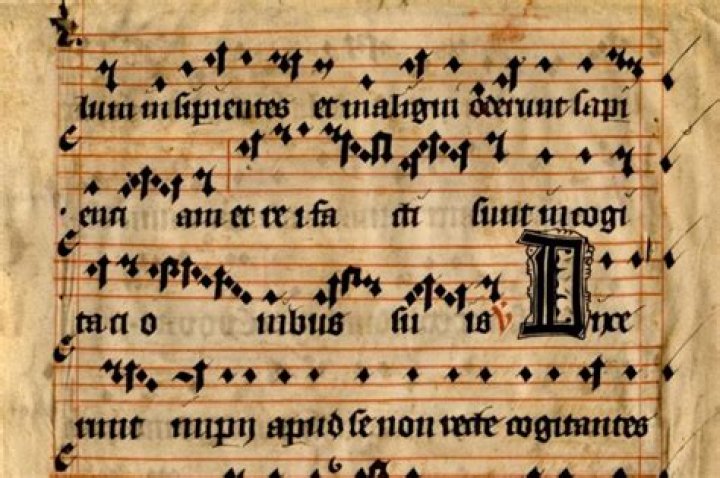 lum insipientes et maligni oderunt sapi
enci am et re i fa cti sunt in cogi
ta ci o nibus su is ℣ Dixe
runt impij apud se non recte cogitantes